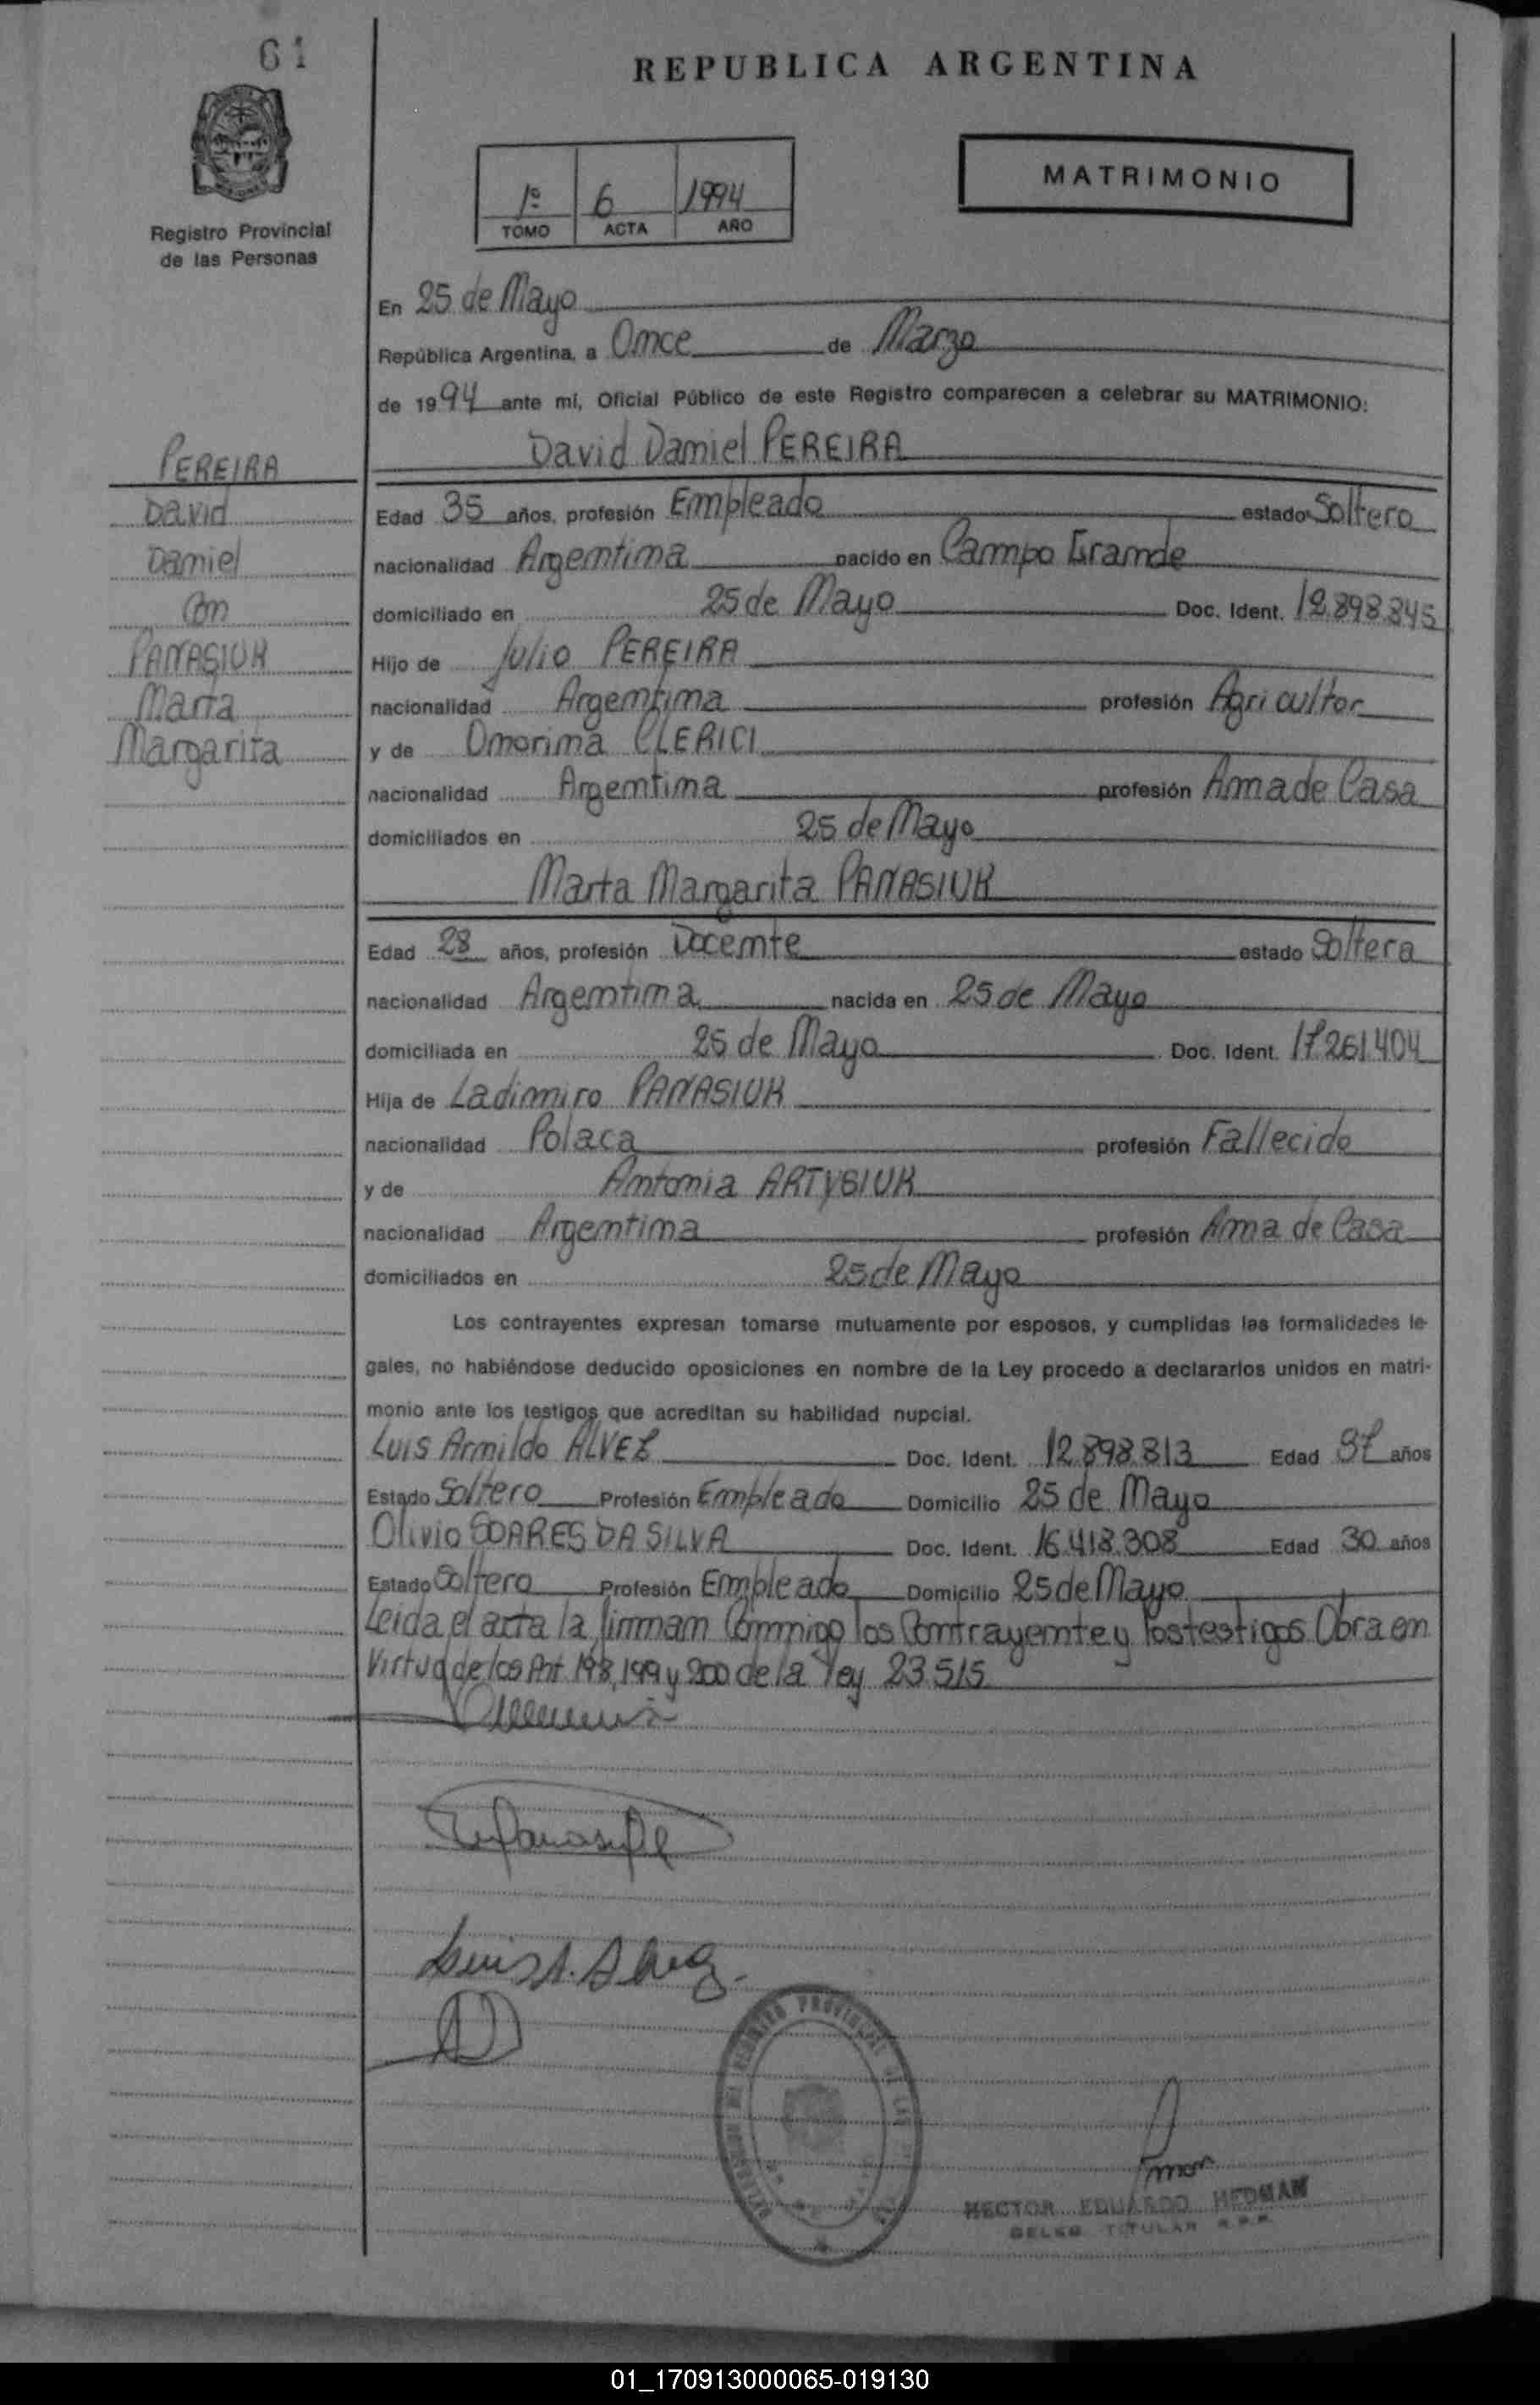 61
REPUBLICA ARGENTINA
Registro Provincial
de las Personas
1º 6 1994
TOMO ACTA AÑO
MATRIMONIO
En 25 de Mayo
República Argentina, a Once de Marzo
de 1994 ante mí, Oficial Público de este Registro comparecen a celebrar su MATRIMONIO:
David Daniel PEREIRA
PEREIRA
David
Daniel
Con
PANASIUK
Marta
Margarita
Edad 35 años, profesión Empleado estado Soltero
nacionalidad Argentina nacido en Campo Grande
domiciliado en 25 de Mayo Doc. Ident. 12.898.845
Hijo de Julio PEREIRA
nacionalidad Argentina profesión Agricultor
y de Onorina CLERICI
nacionalidad Argentina profesión Ama de Casa
domiciliados en 25 de Mayo
Marta Margarita PANASIUK
Edad 28 años, profesión Docente estado Soltera
nacionalidad Argentina nacida en 25 de Mayo
domiciliada en 25 de Mayo Doc. Ident. 17.261.404
Hija de Ladimiro PANASIUK
nacionalidad Polaca profesión Fallecido
y de Antonia ARTYSIUK
nacionalidad Argentina profesión Ama de Casa
domiciliados en 25 de Mayo
Los contrayentes expresan tomarse mutuamente por esposos, y cumplidas las formalidades le-
gales, no habiéndose deducido oposiciones en nombre de la Ley procedo a declararlos unidos en matri-
monio ante los testigos que acreditan su habilidad nupcial.
Luis Arnildo ALVEZ Doc. Ident. 12.898.813 Edad 37 años
Estado Soltero Profesión Empleado Domicilio 25 de Mayo
Olivio SOARES DA SILVA Doc. Ident. 16.418.308 Edad 30 años
Estado Soltero Profesión Empleado Domicilio 25 de Mayo
Leida el acta la firman Conmigo los Contrayente y los testigos Obra en
Virtud de los Art. 198, 199 y 200 de la Ley 23.515
Luis A. Alvez
HECTOR EDUARDO HEDMAN
DELEG. TITULAR R.P.P.
01_170913000065-019130